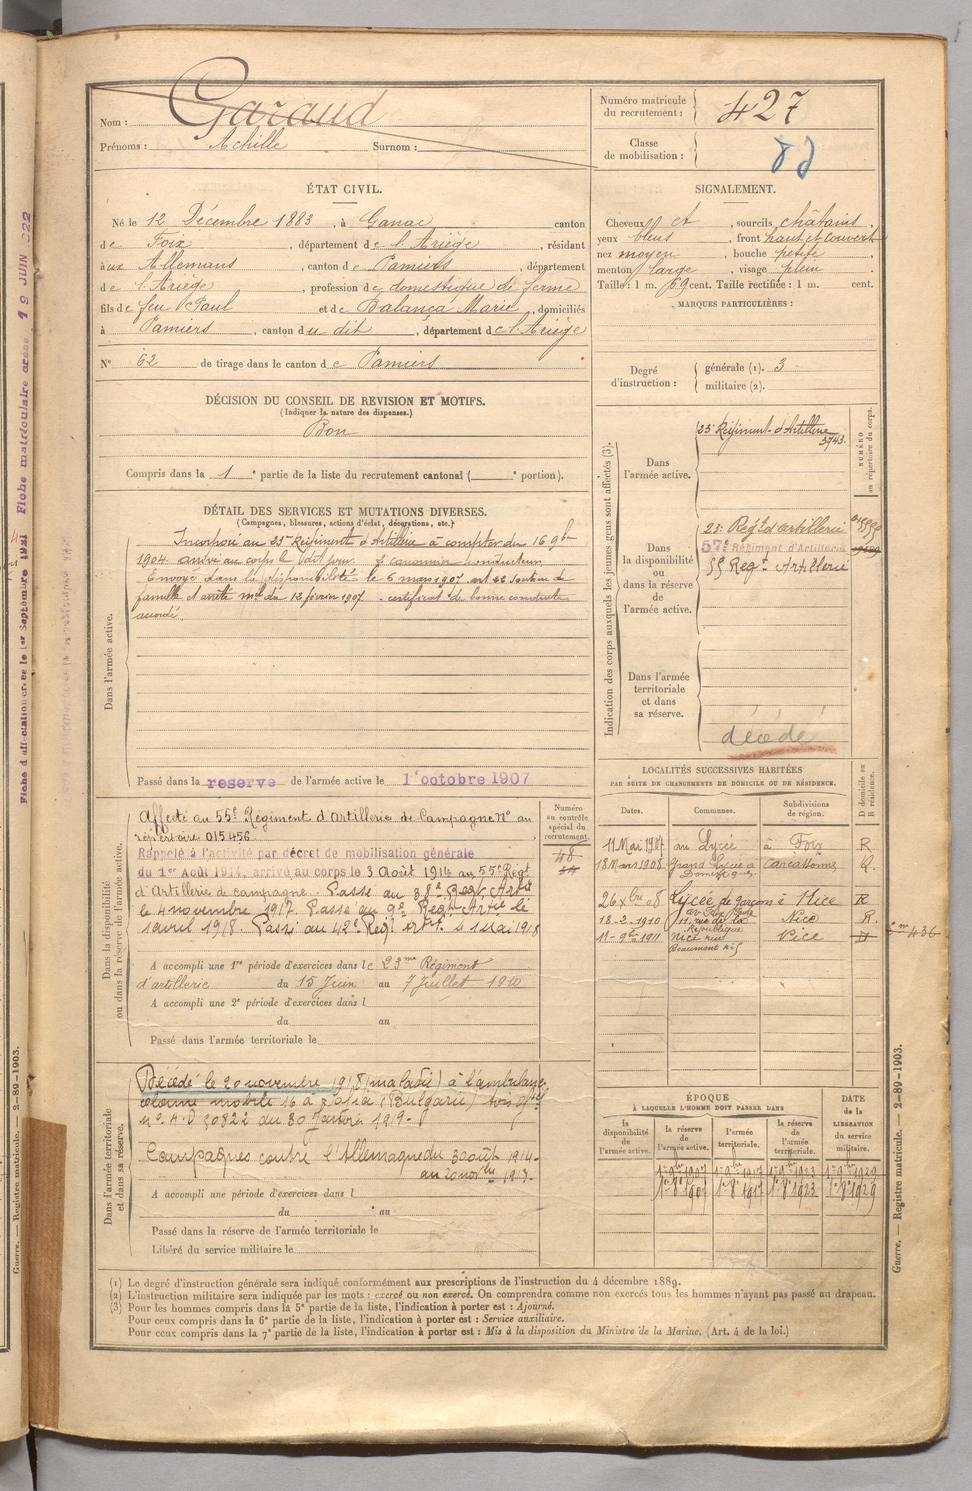 Nom : Garaud
Prénoms : Achille Surnom :
Numéro matricule du recrutement : 427
Classe de mobilisation :
ÉTAT CIVIL.
Né le 12 Décembre 1883, à Ganac canton
de Foix, département de l'Ariège, résidant
aux Allemans, canton de Pamiers, département
de l'Ariège, profession de domestique de ferme
fils de feu Paul et de Balança Marie, domiciliés
à Pamiers, canton du dit, département de l'Ariège
N° 62 de tirage dans le canton de Pamiers
SIGNALEMENT.
Cheveux et, sourcils châtains
yeux bleus, front haut et couvert
nez moyen, bouche petite,
menton large, visage plein
Taille : 1 m. 69 cent. Taille rectifiée : 1 m. cent.
MARQUES PARTICULIÈRES :
Degré d'instruction : générale (1). 3
militaire (2).
DÉCISION DU CONSEIL DE REVISION ET MOTIFS.
(Indiquer la nature des dispenses.)
Bon
Compris dans la 1e partie de la liste du recrutement cantonal ( e portion).
DÉTAIL DES SERVICES ET MUTATIONS DIVERSES.
(Campagnes, blessures, actions d'éclat, décorations, etc.)
Dans l'armée active.
Incorporé au 23e Régiment d'Artillerie à compter du 16 9bre
1904 arrivé au corps le dit jour 2e canonnier conducteur
Envoyé dans la disponibilité le 6 mars 1907 art 22 Soutien de
famille et arrêté mel du 12 février 1907. certificat de bonne conduite
accordé.
Passé dans la reserve de l'armée active le 1er octobre 1907
Indication des corps auxquels les jeunes gens sont affectés (3).
NUMÉRO au répertoire du corps.
Dans l'armée active.
23e Régiment d'Artillerie
3743
Dans la disponibilité ou dans la réserve de l'armée active.
23e Regt d'artillerie
57e Régiment d'Artillerie
55 Regt Artillerie
Dans l'armée territoriale et dans sa réserve.
décédé
Dans la disponibilité ou dans la réserve de l'armée active.
Numéro au contrôle spécial du recrutement.
48
Affecté au 55e Régiment d'Artillerie de Campagne n° au
répertoire 015456.
Rappelé à l'activité par décret de mobilisation générale
du 1er Août 1914, arrivé au corps le 3 Août 1914 au 55e Régt
d'Artillerie de campagne. Passé au 38e Regt Artie
le 4 novembre 1917. Passé au 9e Regt Artie le
1er avril 1918. Passé au 42e Régt art. le 1 mai 1918
A accompli une 1re période d'exercices dans le 23me Régiment
d'artillerie du 15 Juin au 7 Juillet 1910
A accompli une 2e période d'exercices dans l
du au
Passé dans l'armée territoriale le
LOCALITÉS SUCCESSIVES HABITÉES
PAR SUITE DE CHANGEMENTS DE DOMICILE OU DE RÉSIDENCE.
Dates. Communes. Subdivisions de région. D domicile ou R résidence.
11 Mai 1907 au Lycée à Foix R
13 Mars 1908 Grand Lycée à Carcassonne R.
Domestique
26 xbre 08 Lycée de garçons à Nice R
18-2-1910 11, rue de la République Nice R.
11-9bre 1911 Nice rue Beaumont n° 5 Nice D
Dans l'armée territoriale et dans sa réserve.
Décédé le 20 novembre 1918 (maladie) à l'ambulance
colonne mobile 16 à Sofia (Bulgarie) avis offel
n° A.D 50822 du 30 Janvier 1919.
Campagnes contre l'Allemagne du 3 août 1914-
au 20 novbre 191
A accompli une période d'exercices dans l
du au
Passé dans la réserve de l'armée territoriale le
Libéré du service militaire le
ÉPOQUE
À LAQUELLE L'HOMME DOIT PASSER DANS
DATE de la LIBÉRATION du service militaire.
la disponibilité de l'armée active. la réserve de l'armée active. l'armée territoriale. la réserve de l'armée territoriale.
1er 9bre 1907 1er 9bre 1917 1er 9bre 1923 1er 9bre 1929
1er 8bre 1907 1er 8bre 1917 1er 8bre 1923 1er 8bre 1929
(1) Le degré d'instruction générale sera indiqué conformément aux prescriptions de l'instruction du 4 décembre 1889.
(2) L'instruction militaire sera indiquée par les mots : exercé ou non exercé. On comprendra comme non exercés tous les hommes n'ayant pas passé au drapeau.
(3) Pour les hommes compris dans la 5e partie de la liste, l'indication à porter est : Ajourné.
Pour ceux compris dans la 6e partie de la liste, l'indication à porter est : Service auxiliaire.
Pour ceux compris dans la 7e partie de la liste, l'indication à porter est : Mis à la disposition du Ministre de la Marine. (Art. 4 de la loi.)
Guerre. — Registre matricule. — 2-89-1903.
Guerre. — Registre matricule. — 2-89-1903.
Fiche d'affectation créée le 1er Septembre 1921 Fiche matriculaire créée 19 JUIN 1922